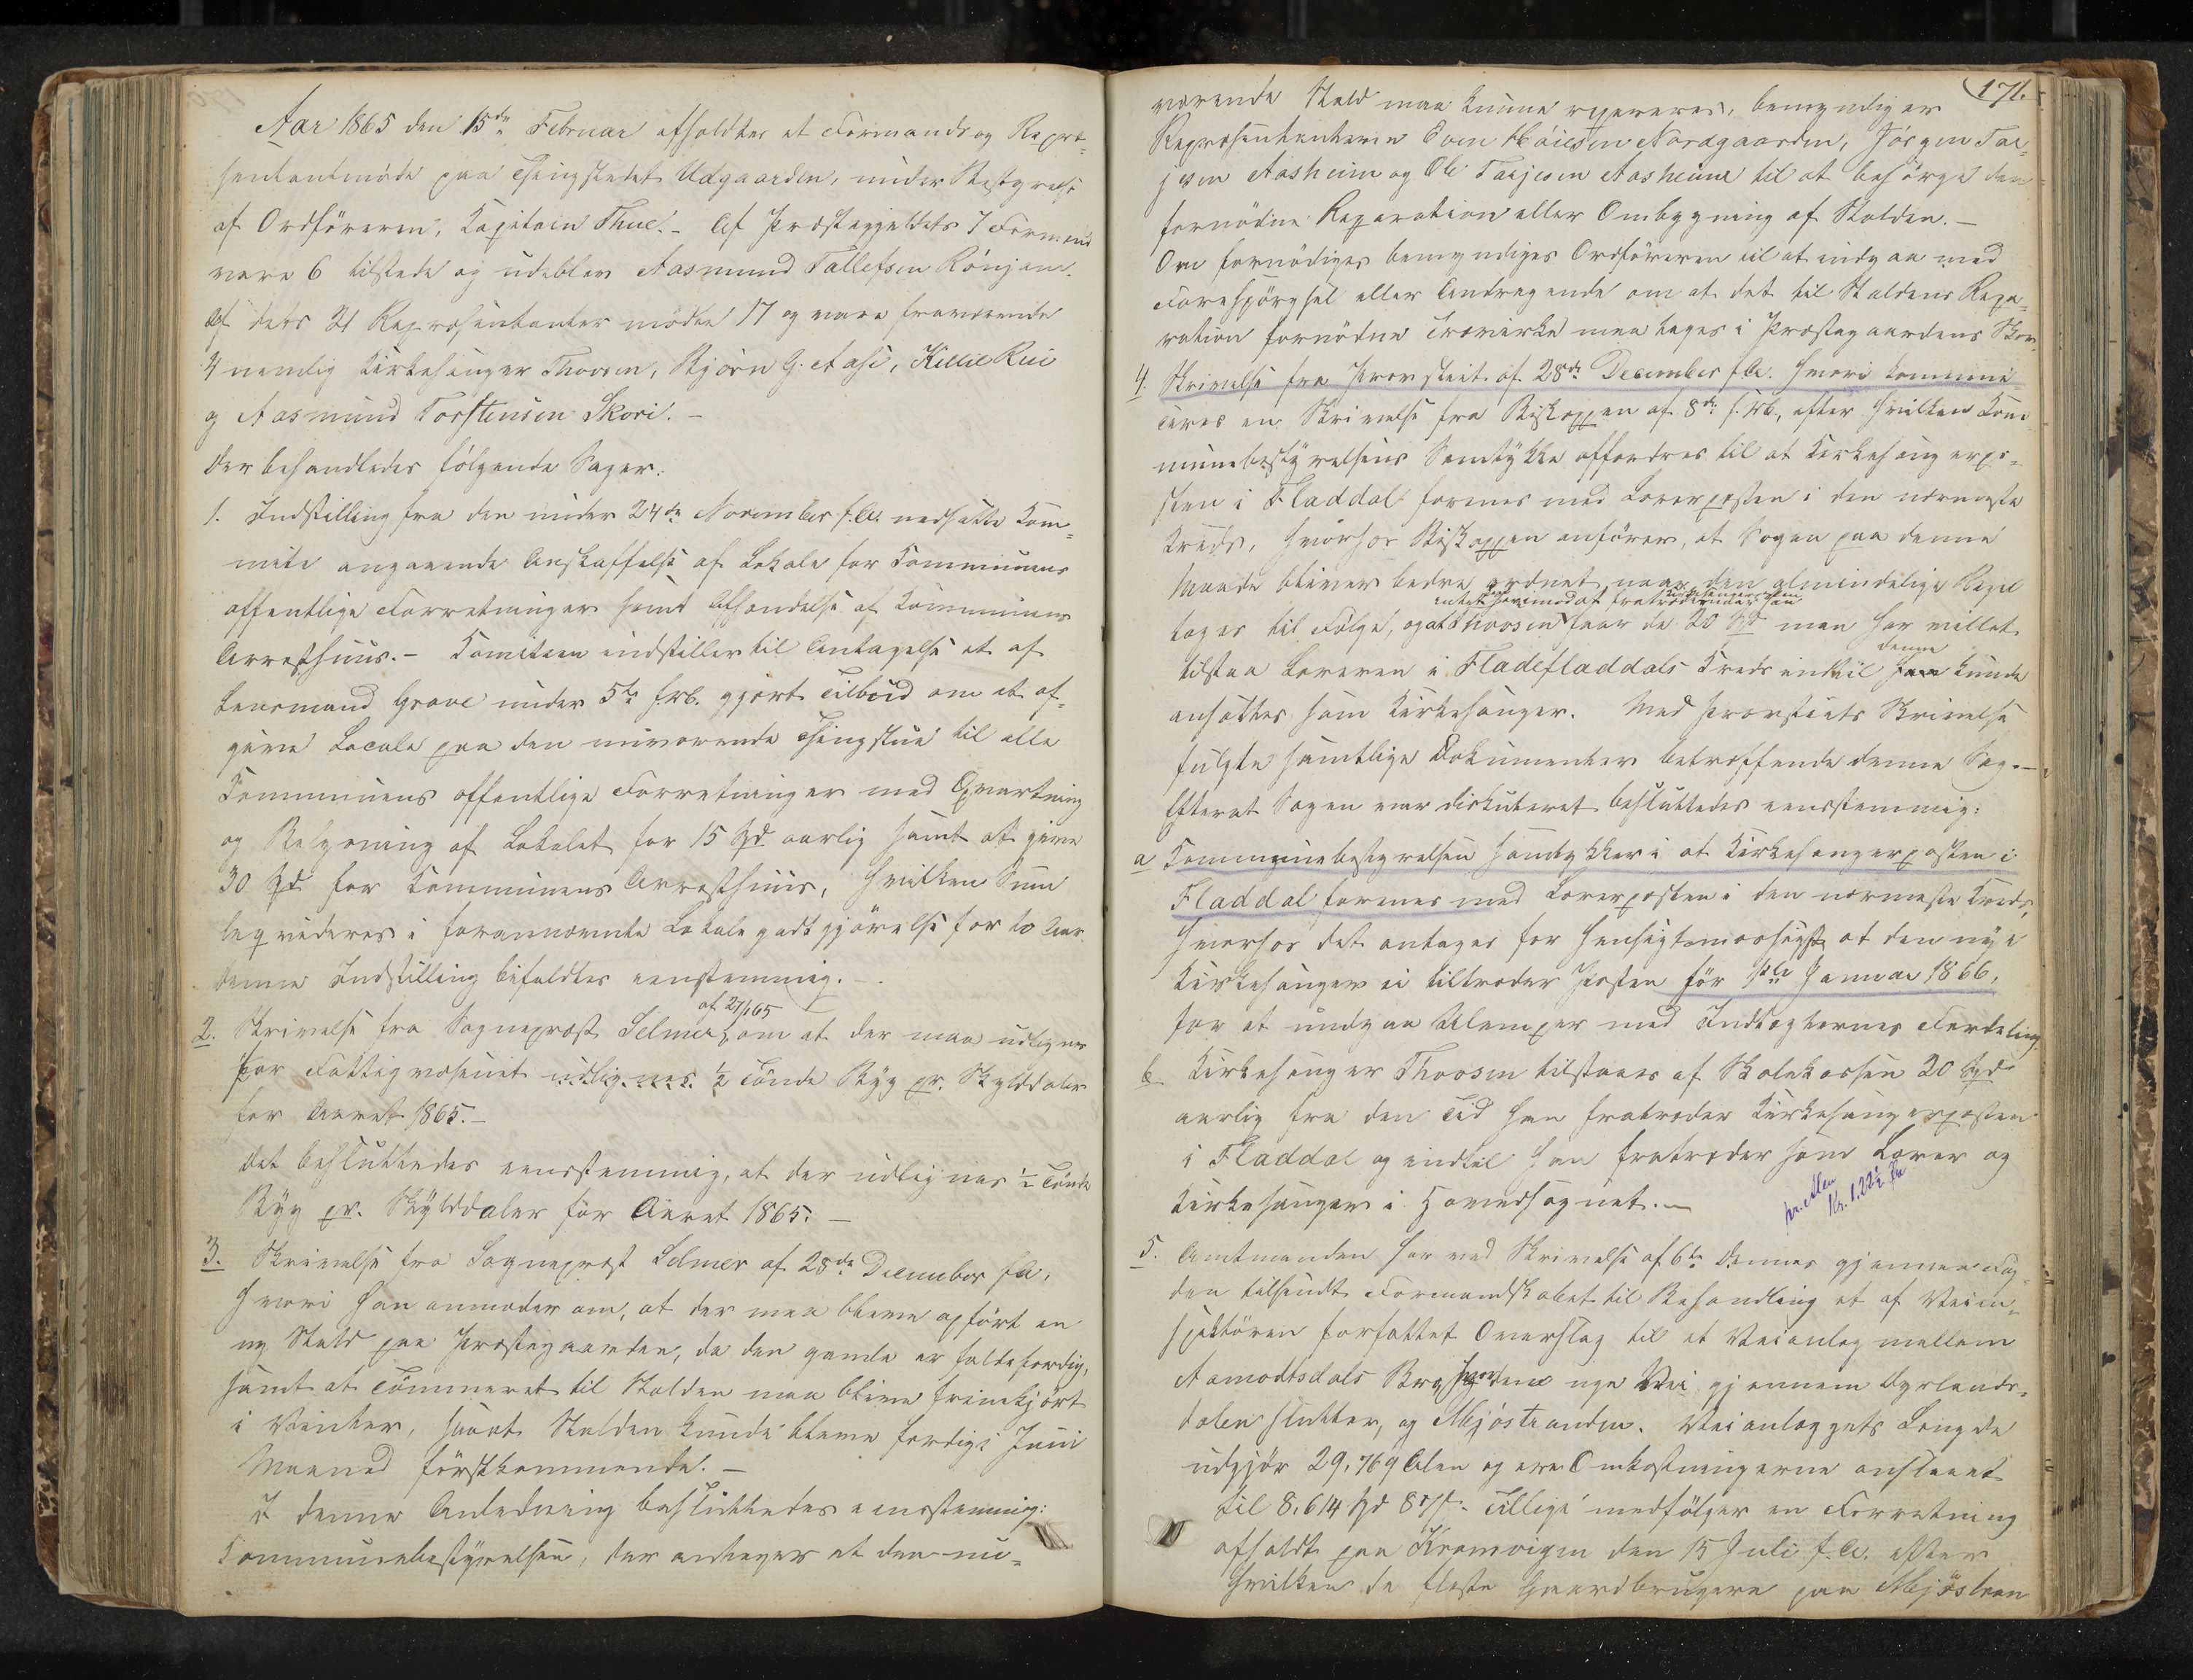 Aar 1865 den 15de Februar afholdtes et Formands og Repræ=
sentantmöde paa Thingstedet Udgaarden, under Bestyrelse
af Ordföreren, Kapitain Thue. - Af Præstegjeldets 7 Formænd
vare 6 tilstede og udeblev Aasmund Tallefsen Rönjom.
Af dets 21 Repræsentanter mödte 17 og vare fraværende
4 nemlig Kirkesanger Thoresen, Björn G. Aase, Killie Rui
og Aasmund Torstensen Skori. -
Der behandledes fölgende Sager:
1. Indstilling fra den under 24de November f. A. nedsatte Kom=
mite angaaende Anskaffelse af Lokale for Communens
offentlige Forretninger samt Afhændelse af Kommunens
Arresthuus. - Komiteen indstiller til Antagelse et af
Lensmand Grave under 5te f. M. gjort Tilbud om at af=
give Locale paa den nuværende Thingstue til alle
Communens offentlige Forretninger med Opvartning
og Belysning af Lokalet for 15 Spd aarlig samt at give
30 Spd for Kommunens Arresthuus, hvilken Sum
leqvideres i forannævnte Lokalegodtgjörelse for to Aar.
Denne Indstilling bifaldtes eenstemmig. -
af 27/1 65
2. Skrivelse fra Sognepræst Selmer, om at der maa udlignes
for Fattigvæsenet udlignes ½ Tönde Byg pr. Skylddaler
for Aaret 1865. -
Det besluttedes eensstemmig, at der udlignes ½ Tönde
Byg pr. Skylddaler for Aaret 1865. -
3. Skrivelse fra Sogneprest Selmer af 28de December f. A.
hvori han anmoder om, at der maa blive opfört en
ny Stald paa Præstegaarden, da den gamle er faldefærdig,
samt at Tömmeret til Stalden maa blive fremkjört
i Vinter, saa at Stalden kunde blive færdig i Juni
Maaned förstkommende. -
I denne Anledning besluttedes eensstemmig:
Kommunebestyrelsen, der antager at den nu=
171.
værende Stald maa kunne repareres, bemyndiger
Repræsentanterne Even Nordgaarden, Jörgen Tar=
jesen Aasheim og Ole Tarjesen Aasheim til at besörge den
fornödne Reparation eller Ombygning af Stalden. -
Om fornödiges bemyndiges Ordföreren til at indgaa med
Forespörgsel eller Andragende om at det til Staldens Repa=
ration fornödne Trævirke maa tages i Præstegaardens Skov.
4. Skrivelse fra Provstiet af 28de December f. A. hvori kommuni=
ceres en Skrivelse fra Biskoppen af 8de f. M., efter hvilken Kom
munebestyrelsens Samtykke affordres til at Kirkesangerpo=
sten i Fladdal forenes med Lærerposten i den nærmeste
Kreds, hvorhos Biskoppen anförer, at Sagen paa denne
Maade bliver bedre ordnet, naar den almindelige Regel
Kirkesangerposten
tages til Fölge, og at Thoresen faar de 20 Spd man har villet
denne
tilstaa Læreren i Fladefladdals Kreds indtil han kunde
ansættes som Kirkesanger. Med Provstiets Skrivelse
fulgte samtlige Dokumenter betræffende denne Sag. -
Efterat Sagen var diskuteret besluttedes eensstemmig:
a Kommunebestyrelsen samtykker i at Kirkesangerposten i
Fladdal forenes med Lærerposten i den nærmeste Kreds,
hvorhos det antages for hensigtsmæssigst at den nye
Kirkesanger ei tiltræder Posten för 1ste Januar 1866,
for at undgaa Ulemper med Indtægternes Fordeling.
b Kirkesanger Thoresen tilstaaes af Skolekassen 20 Spd
aarlig fra den Tid han fratræder Kirkesangerposten
i Fladdal og indtil han fratræder som Lærer og
Kirkesanger i Hovedsognet. -
pr. Alen
Kr. 1.22½
5. Amtmanden har ved Skrivelse af 6te Dennes gjennem Fog=
den tilsendt Formandskabet til Behandling et af Veiin=
spektören forfattet Overslag til et Veianlæg mellem
Aamodtsdals Bro, hvor den nye Vei gjennem Dyrlands=
dalen slutter, og Mjöstranden. Veianlæggets Længde
udgjör 29,769 Alen og ere Omkostningerne anslaaet
til 8,614 Spd 8 ß. Tillige medfölger en Forretning
afholdt paa Kromvigen den 15 Juli f. A. efter
hvilken de fleste Gaardbrugere paa Mjöstran